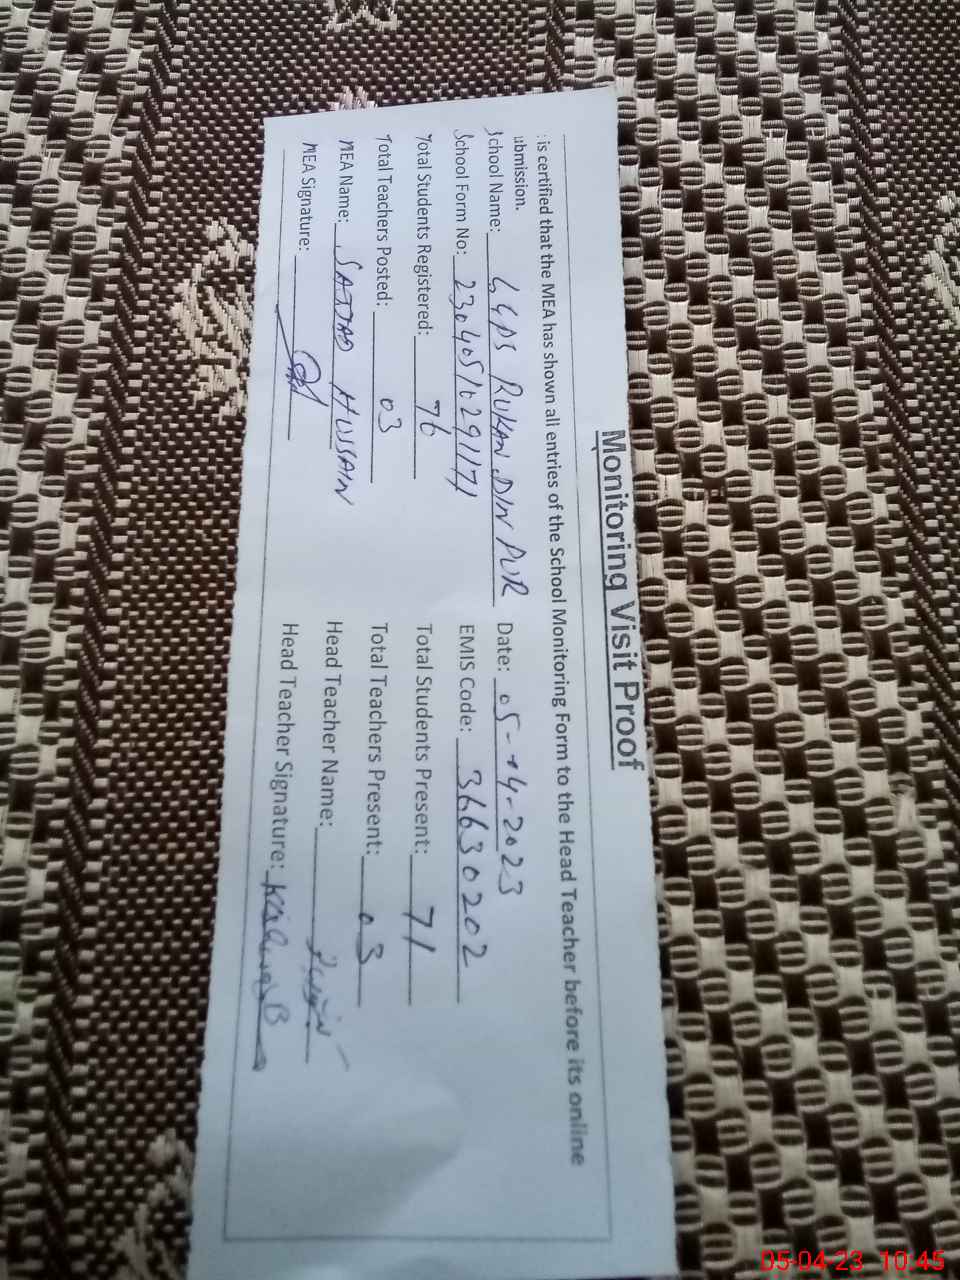 Monitoring Visit Proof
is certified that the MEA has shown all entries of the School Monitoring Form to the Head Teacher before its online
ubmission.
School Name: GGPS RUKAN DIN PUR Date: 05-04-2023
School Form No: EMIS Code: 36630202
Total Students Registered: 76 Total Students Present: 71
Total Teachers Posted: 03 Total Teachers Present: 03
MEA Name: SAJJAD HUSSAIN Head Teacher Name:
MEA Signature: Head Teacher Signature:
05-04-23 10:45